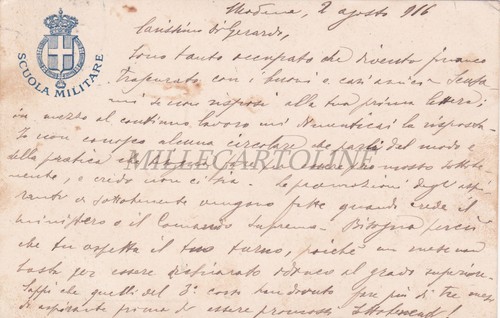 SCUOLA MILITARE
Modena, 2 agosto 916
Carissimo Di Gerardi,
Sono tanto occupato che divento
trascurato con i buoni e cari amici. Scusa-
mi se non risposi alla tua prima lettera;
in mezzo al continuo lavoro mi dimenticai la risposta.
Io non conosco alcuna circolare che parli del modo e
della pratica
MILLECARTOLINE
mento, e credo non ci sia. Le promozioni degli aspi-
ranti a sottotenente vengono fatte quando crede il
ministero o il Comando Supremo. Bisogna perciò
che tu aspetta il tuo turno, poiché un mese non
basta per essere idoneo al grado superiore.
Sappi che quelli del 3° corso han dovuto fare più di tre mesi
di aspirante prima di essere promossi